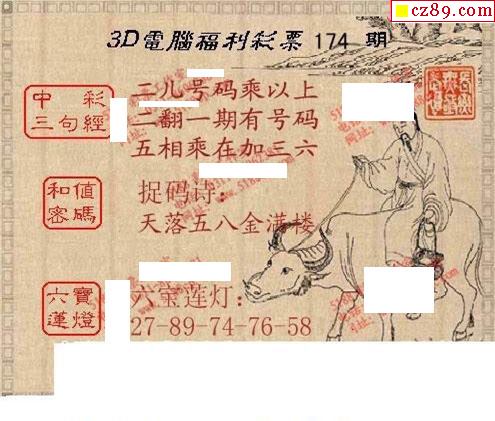 cz89.com
3D電腦福利彩票 174 期
中彩
三句經
二九号码乘以上
二翻一期有号码
五相乘在加三六
和值
密碼
捉码诗：
天落五八金满楼
六寶
蓮燈
六宝莲灯：
27-89-74-76-58